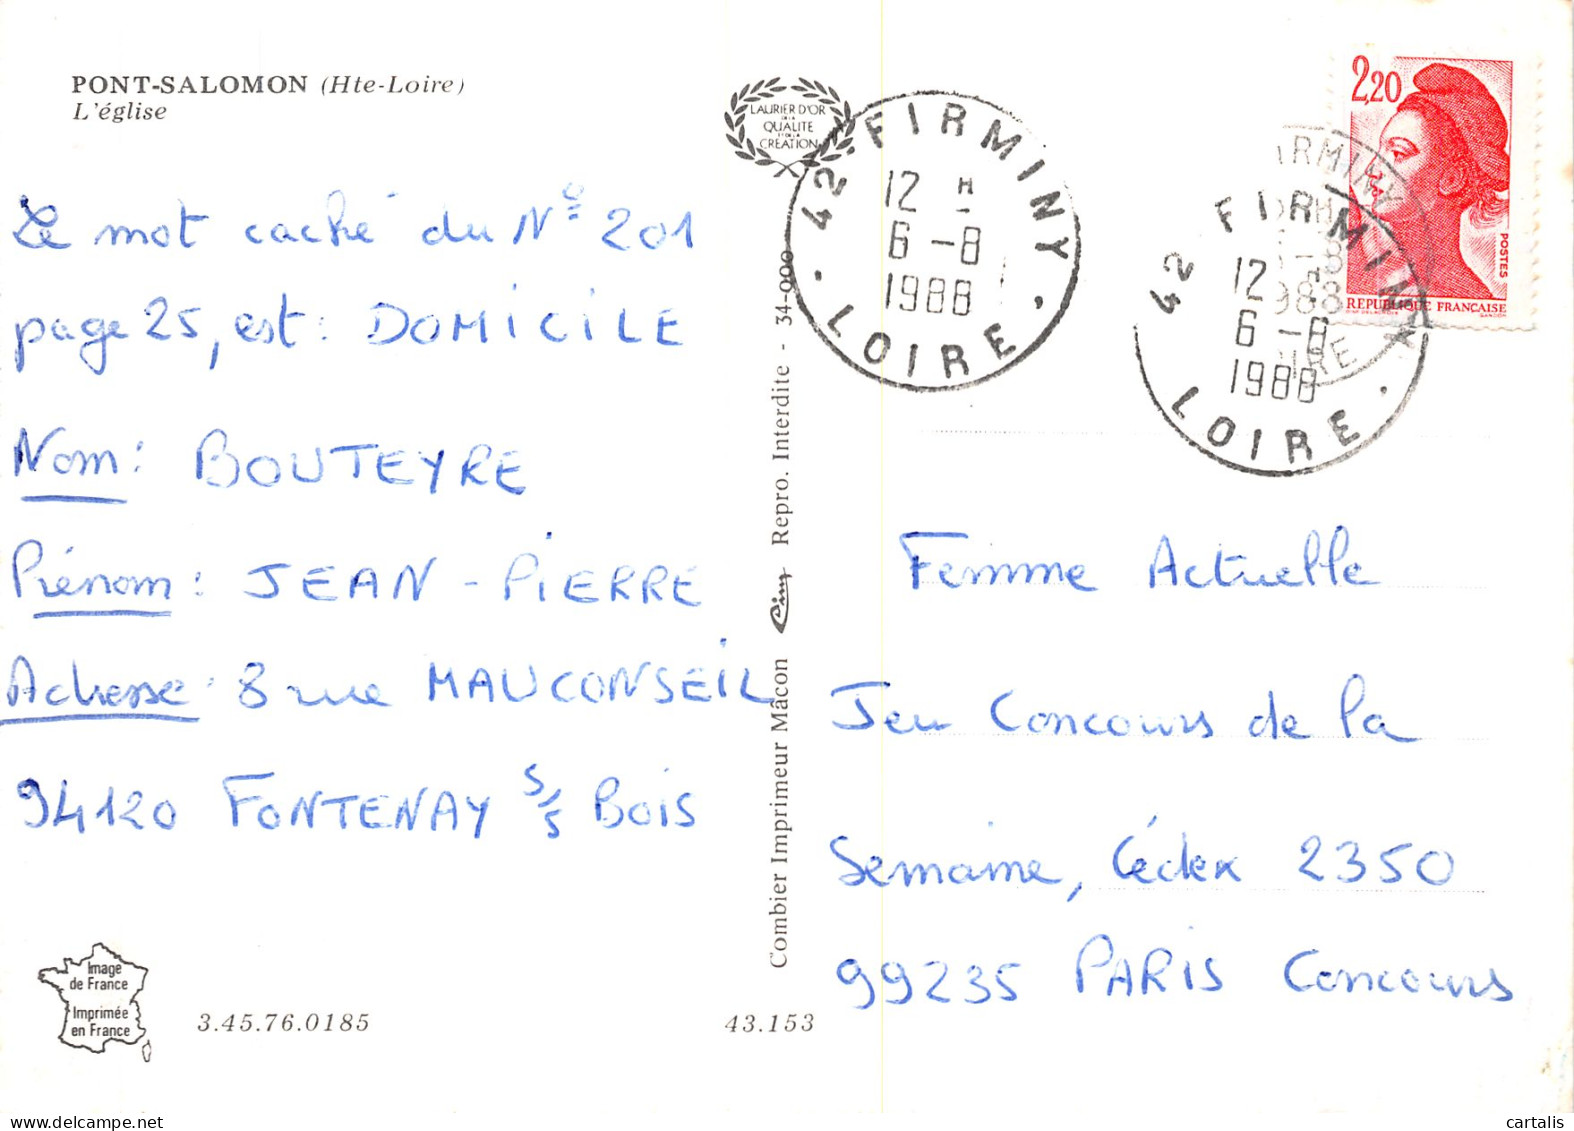 PONT-SALOMON (Hte-Loire)
L'église
Le mot caché du N° 201
page 25, est : DOMiCiLE
Nom : BOUTEYRE
Prénom : JEAN - PiERRE
Adresse : 8 rue MAUCONSEiL
94120 FONTENAY S/S BOiS
Image
de France
Imprimée
en France
3.45.76.0185
43.153
LAURIER D'OR
DE LA
QUALITE
ET DE LA
CREATION
Combier Imprimeur Mâcon Cim Repro. Interdite - 34-000
42 FIRMINY
12 H
6 -8
1988
LOIRE
42 FIRMINY
12 H
6 -8
1988
LOIRE
IRMINY
-8
988
IRE
2,20
POSTES
REPUBLIQUE FRANÇAISE
Femme Actuelle
Jeu Concours de la
Semaine, Cédex 2350
99235 PARiS Concours
cartalis
www.delcampe.net